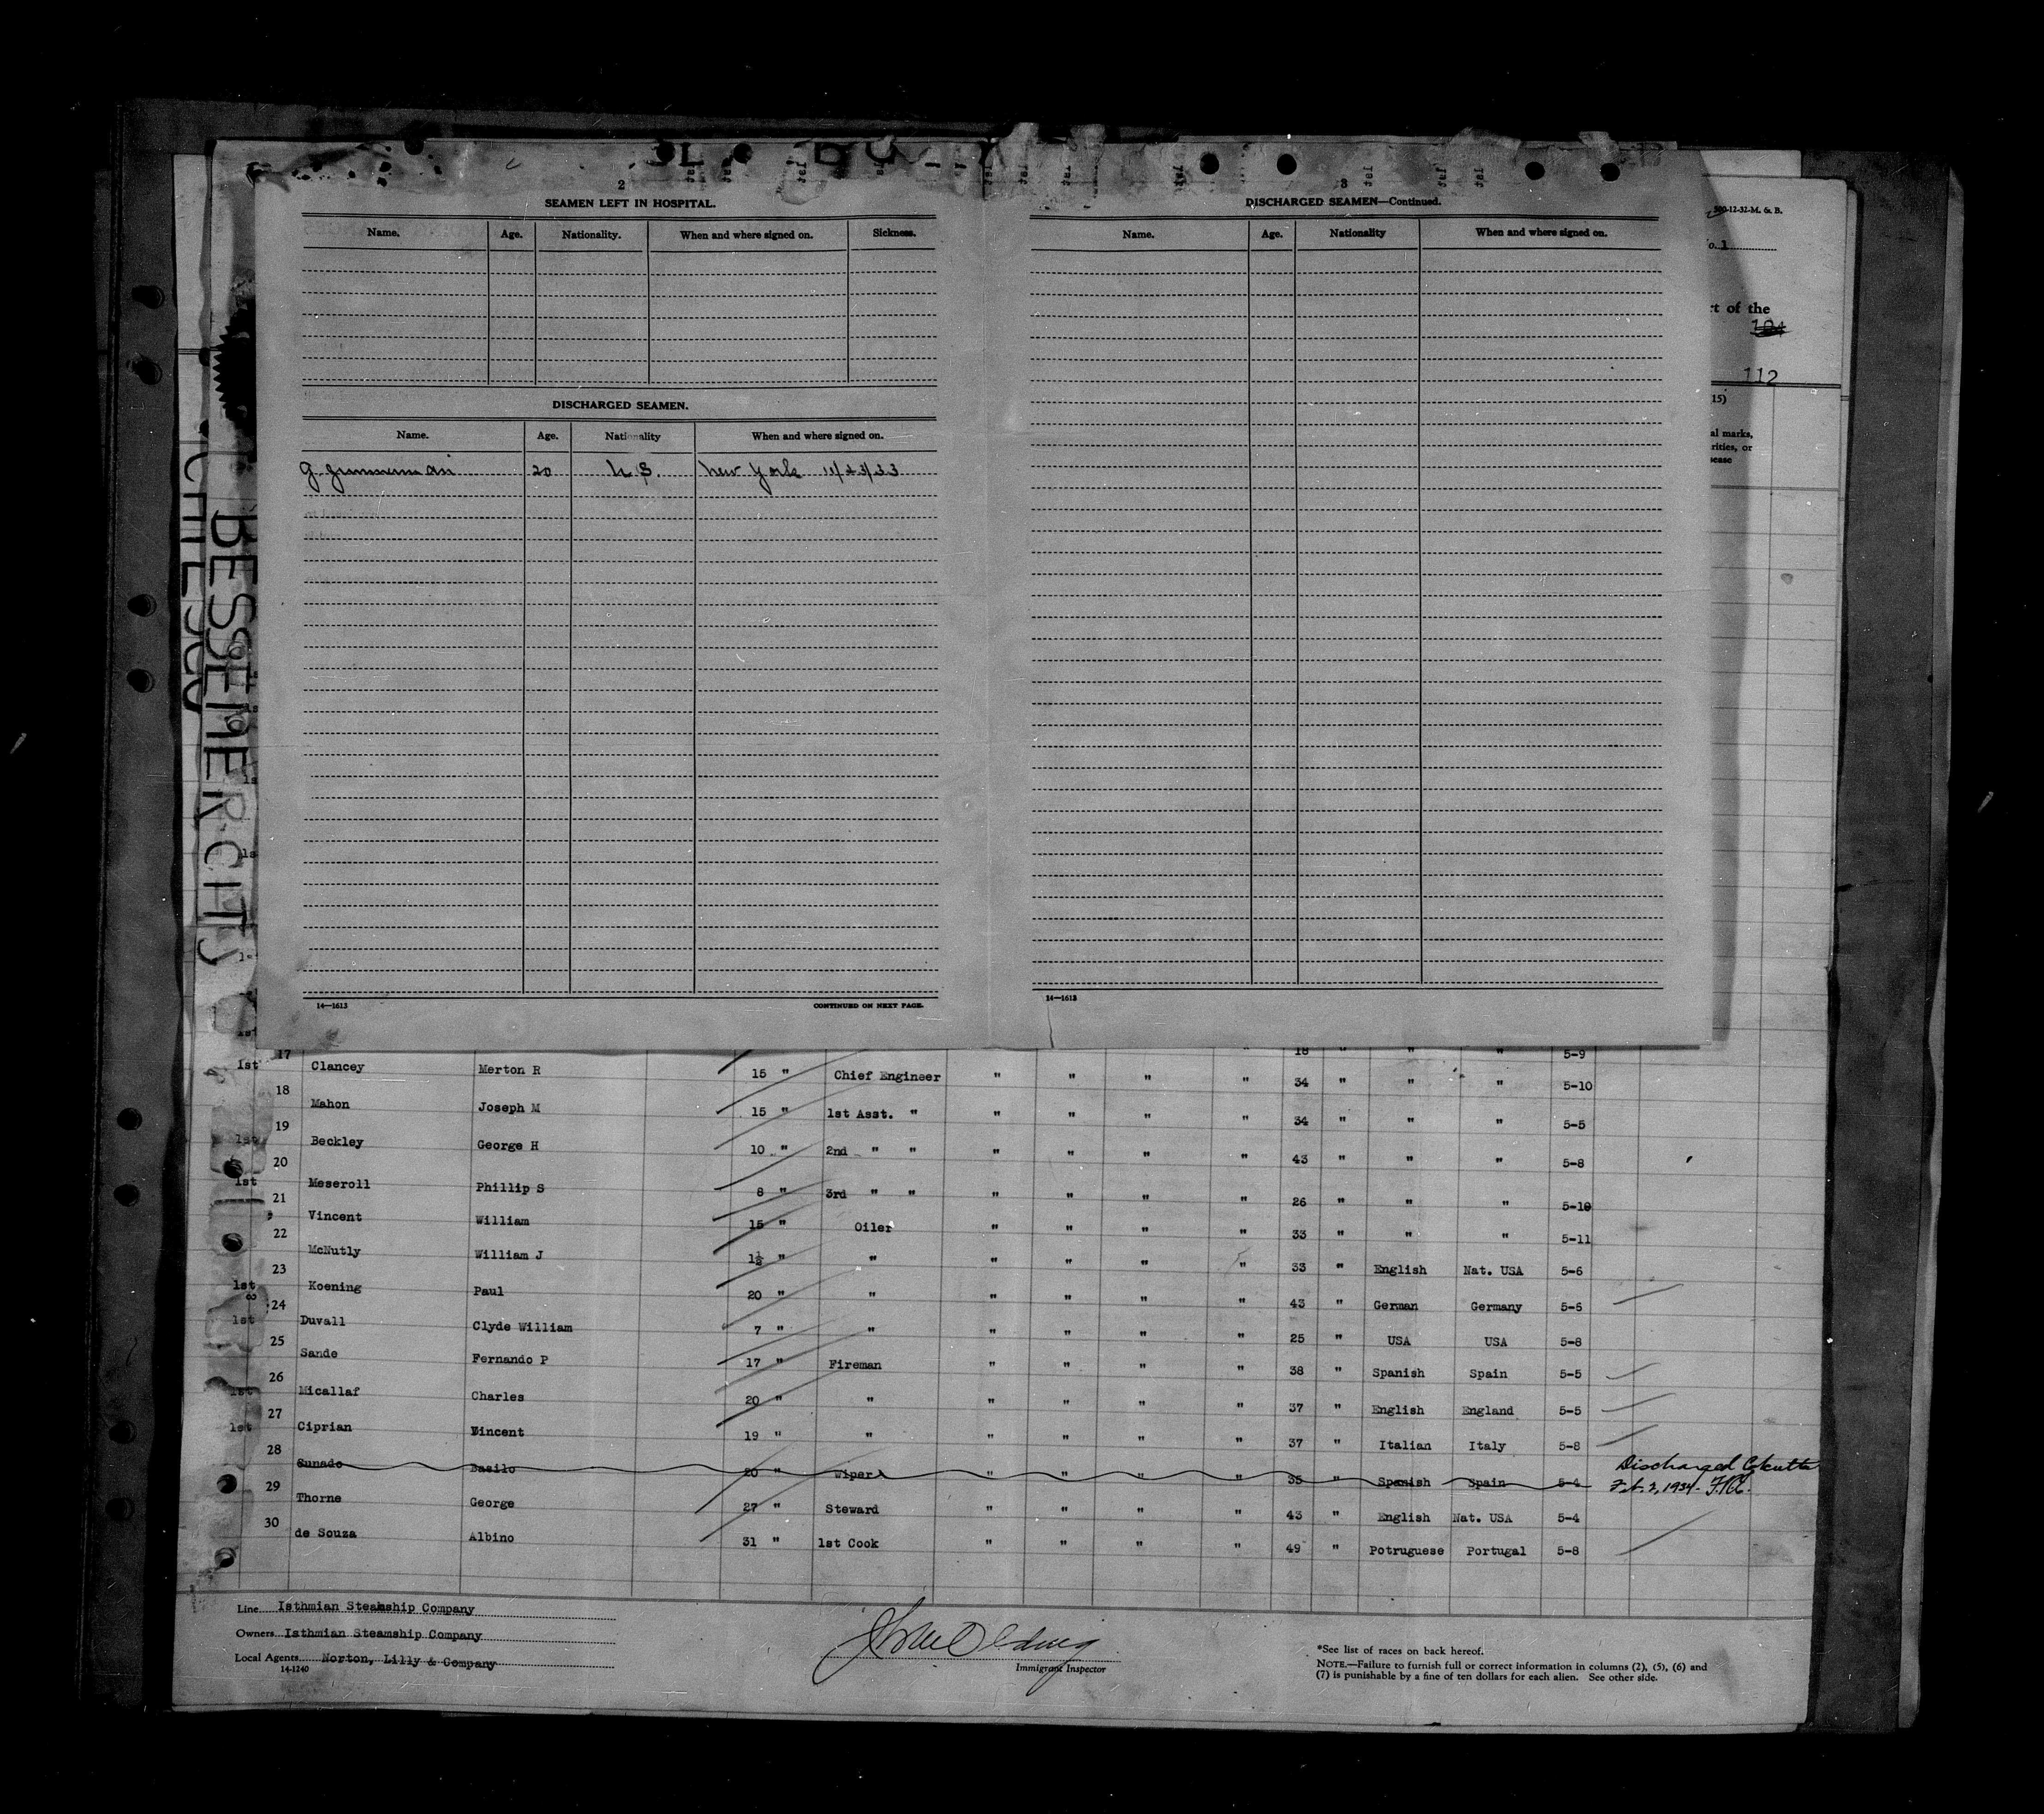 2
SEAMEN LEFT IN HOSPITAL.
Name. Age. Nationality. When and where signed on. Sickness.
DISCHARGED SEAMEN.
Name. Age. Nationality When and where signed on.
G. 20 U.S. New York 11/23/33
14—1613 CONTINUED ON NEXT PAGE.
3
DISCHARGED SEAMEN—Continued.
Name. Age. Nationality When and where signed on.
14—1613
500-12-32-M. & B.
1
of the
104
112
(15)
al marks,
rities, or
BESSEMER CITY
17 18 " " " 5-9
1st Clancey Merton R 15 " Chief Engineer " " " " 34 " " " 5-10
18 Mahon Joseph M 15 " 1st Asst. " " " " " 34 " " " 5-5
19 1st Beckley George H 10 " 2nd " " " " " " 43 " " " 5-8
20 1st Meseroll Phillip S 8 " 3rd " " " " " " 26 " " " 5-10
21 " Vincent William 15 " Oiler " " " " 33 " " " 5-11
22 McNutly William J 1½ " " " " " " 33 " English Nat. USA 5-6
23 1st Koening Paul 20 " " " " " " 43 " German Germany 5-6
24 1st Duvall Clyde William 7 " " " " " " 25 " USA USA 5-8
25 Sande Fernando P 17 " Fireman " " " " 38 " Spanish Spain 5-5
26 1st Micallaf Charles 20 " " " " " " 37 " English England 5-5
27 1st Ciprian Vincent 19 " " " " " " 37 " Italian Italy 5-8
28 Sunado Basilo 20 " Wiper " " " " 35 " Spanish Spain 5-4 Discharged Calcutta
Feb. 3, 1934.
29 Thorne George 27 " Steward " " " " 43 " English Nat. USA 5-4
30 de Souza Albino 31 " 1st Cook " " " " 49 " Potruguese Portugal 5-8
Line Isthmian Steamship Company
Owners Isthmian Steamship Company
Local Agents Norton, Lilly & Company
14-1240
Immigrant Inspector
*See list of races on back hereof.
NOTE.—Failure to furnish full or correct information in columns (2), (5), (6) and
(7) is punishable by a fine of ten dollars for each alien. See other side.